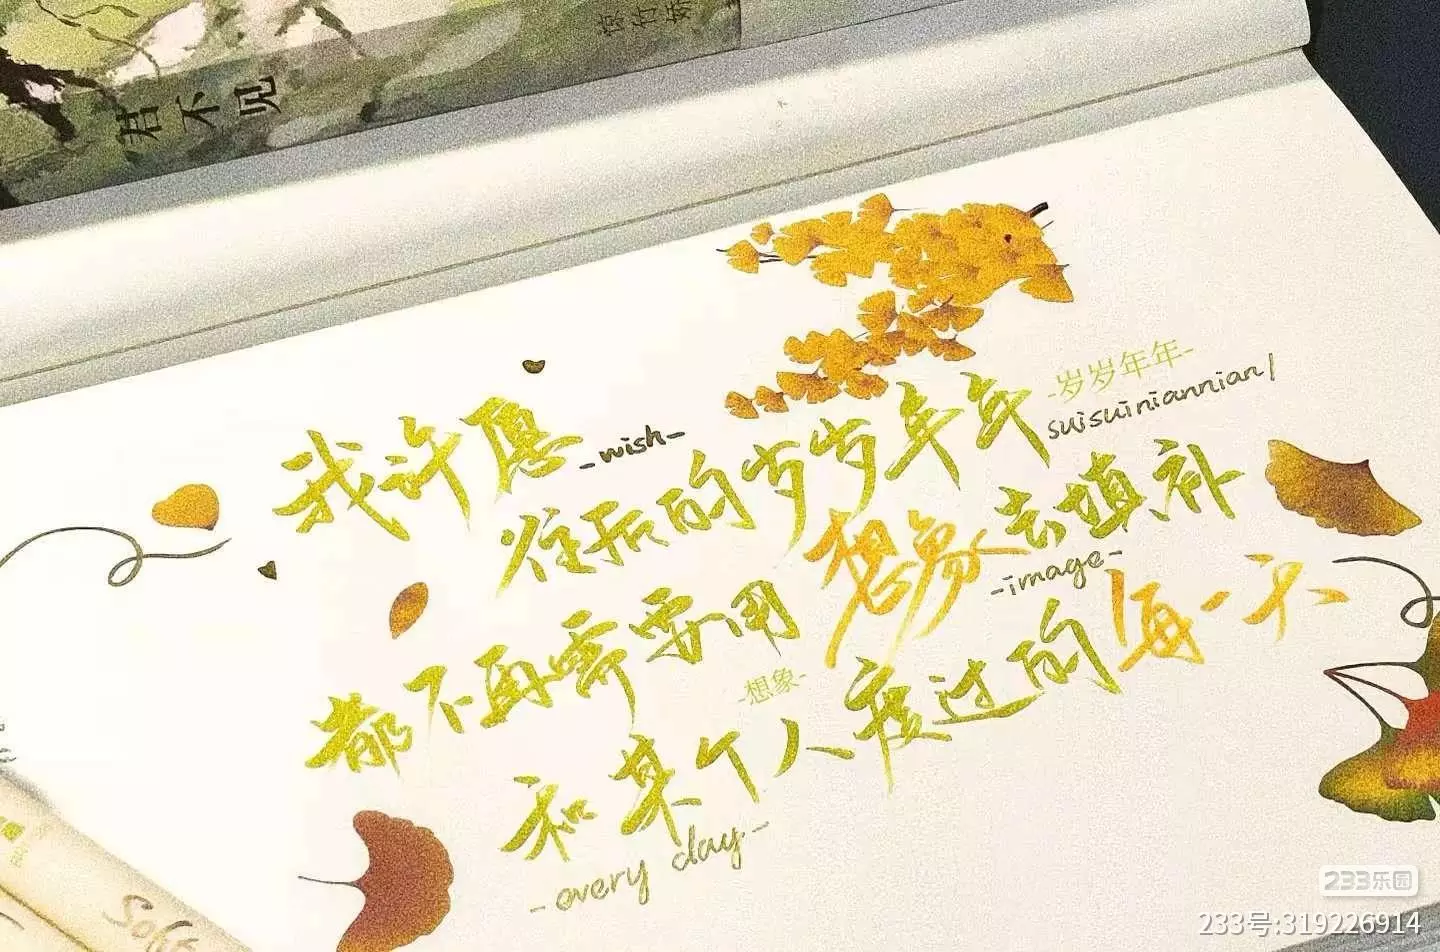 君不见
我许愿
-wish-
往后的岁岁年年
-岁岁年年-
suisuiniannian/
都不再需要用想象去填补
-想象-
-image-
和某个人度过的每一天
-every day-
Soft
233乐园
233号:319226914